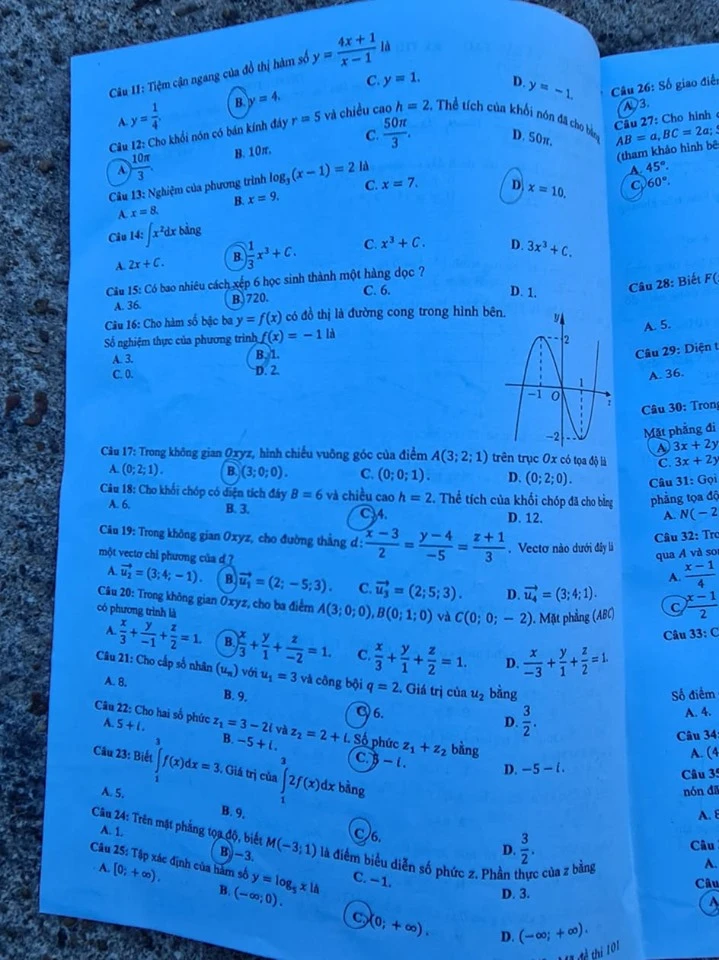 Câu 11: Tiệm cận ngang của đồ thị hàm số y = (4x + 1)/(x − 1) là
A. y = 1/4. B. y = 4. C. y = 1. D. y = −1.
Câu 12: Cho khối nón có bán kính đáy r = 5 và chiều cao h = 2. Thể tích của khối nón đã cho bằng
A. 10π/3. B. 10π. C. 50π/3. D. 50π.
Câu 13: Nghiệm của phương trình log₃(x − 1) = 2 là
A. x = 8. B. x = 9. C. x = 7. D. x = 10.
Câu 14: ∫x²dx bằng
A. 2x + C. B. 1/3 x³ + C. C. x³ + C. D. 3x³ + C.
Câu 15: Có bao nhiêu cách xếp 6 học sinh thành một hàng dọc ?
A. 36. B. 720. C. 6. D. 1.
Câu 16: Cho hàm số bậc ba y = f(x) có đồ thị là đường cong trong hình bên.
Số nghiệm thực của phương trình f(x) = −1 là
A. 3. B. 1.
C. 0. D. 2.
y
2
−1 O 1
−2
Câu 17: Trong không gian Oxyz, hình chiếu vuông góc của điểm A(3; 2; 1) trên trục Ox có tọa độ là
A. (0; 2; 1). B. (3; 0; 0). C. (0; 0; 1). D. (0; 2; 0).
Câu 18: Cho khối chóp có diện tích đáy B = 6 và chiều cao h = 2. Thể tích của khối chóp đã cho bằng
A. 6. B. 3. C. 4. D. 12.
Câu 19: Trong không gian Oxyz, cho đường thẳng d: (x − 3)/2 = (y − 4)/−5 = (z + 1)/3. Vectơ nào dưới đây là
một vectơ chỉ phương của d ?
A. u₂ = (3; 4; −1). B. u₁ = (2; −5; 3). C. u₃ = (2; 5; 3). D. u₄ = (3; 4; 1).
Câu 20: Trong không gian Oxyz, cho ba điểm A(3; 0; 0), B(0; 1; 0) và C(0; 0; −2). Mặt phẳng (ABC)
có phương trình là
A. x/3 + y/−1 + z/2 = 1. B. x/3 + y/1 + z/−2 = 1. C. x/3 + y/1 + z/2 = 1. D. x/−3 + y/1 + z/2 = 1.
Câu 21: Cho cấp số nhân (uₙ) với u₁ = 3 và công bội q = 2. Giá trị của u₂ bằng
A. 8. B. 9. C. 6. D. 3/2.
Câu 22: Cho hai số phức z₁ = 3 − 2i và z₂ = 2 + i. Số phức z₁ + z₂ bằng
A. 5 + i. B. −5 + i. C. 5 − i. D. −5 − i.
Câu 23: Biết ∫₁³ f(x)dx = 3. Giá trị của ∫₁³ 2f(x)dx bằng
A. 5. B. 9. C. 6. D. 3/2.
Câu 24: Trên mặt phẳng tọa độ, biết M(−3; 1) là điểm biểu diễn số phức z. Phần thực của z bằng
A. 1. B. −3. C. −1. D. 3.
Câu 25: Tập xác định của hàm số y = log₅ x là
A. [0; +∞). B. (−∞; 0). C. (0; +∞). D. (−∞; +∞).
đề thi 101
Câu 26: Số giao
A. 3.
Câu 27: Cho hình
AB = a, BC = 2a;
(tham khảo hình
A. 45°.
C. 60°.
Câu 28: Biết F(
A. 5.
Câu 29: Diện
A. 36.
Câu 30:
Mặt phẳng đi
A. 3x + 2y
C. 3x + 2y
Câu 31: Gọi
phẳng tọa độ
A. N(−2
Câu 32:
qua A và
A. x − 1/4
C. x − 1/2
Câu 33:
Số điểm
A. 4.
Câu 34:
A. (4
Câu
nón
A.
Câu
A.
Câu
A